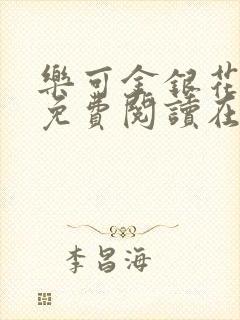 樂可金銀花
免費閱讀在
李昌海